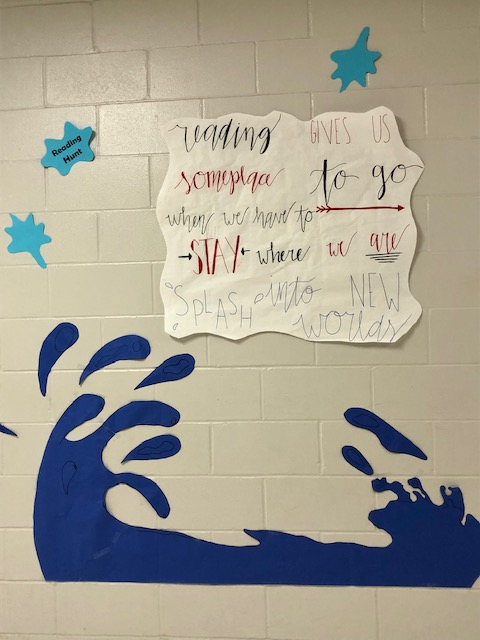 Reading
Hunt
reading GIVES US
someplace to go
when we have to
STAY where we are
SPLASH into NEW
worlds